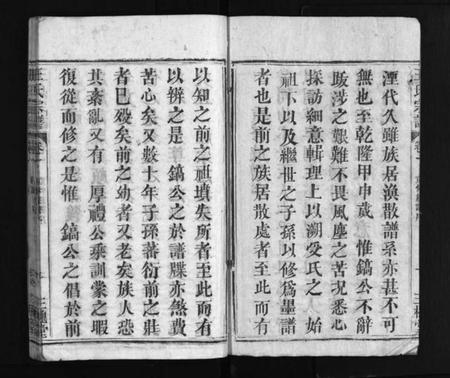 湮代久雖族居渙散譜系亦甚不可
無也至乾隆甲申歲 惟鎬公不辭
跋涉之艱難不畏風塵之苦況悉心
採訪細意輯理上以溯受氏之 始
祖下以及繼世之子孫以修為墨譜
者也是前之族居散處者至此而有
以知之前之祖墳失所者至此而有
以辨之是 鎬公之於譜牒亦煞費
苦心矣又數十年子孫蕃衍前之壯
者已歿矣前之幼者又老矣族人恐
其紊亂又有 厚禮公乘訓蒙之暇
復從而修之是惟 鎬公之倡於前
王氏宗譜
卷
三槐堂